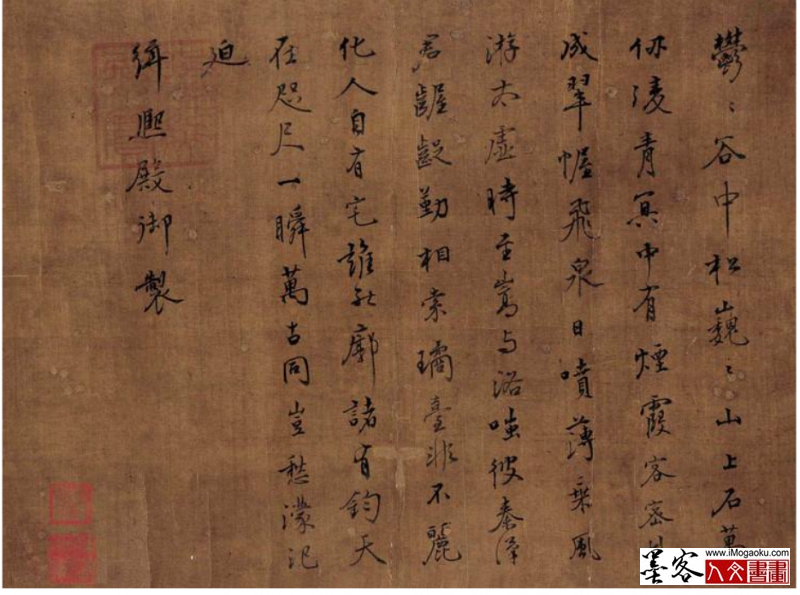 鬱〻谷中松巍〻山上石萬
仞凌青冥中有煙霞客密
成翠幄飛泉日噴薄乘風
游太虛時至嵩与洛嗤彼秦漢
君齷齪勤相索璚臺非不麗
化人自有宅能廓諸有鈞天
在咫尺一瞬萬古同豈愁濛汜
迫
緝熙殿御製
墨客
www.iMogaoku.com
人文書畫